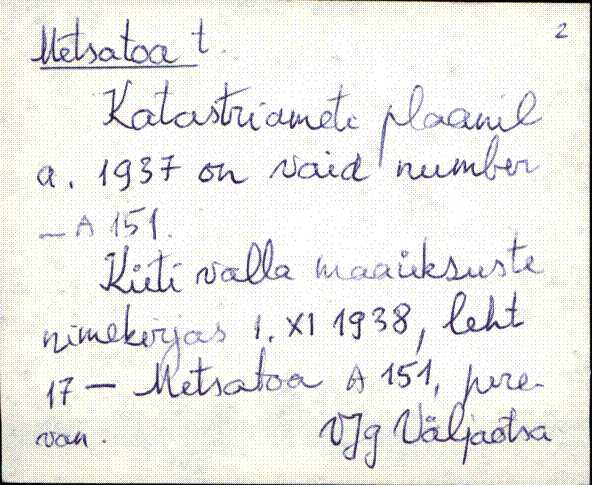 2
Metsatoa t.
Katastriameti plaanil
a. 1937 on vaid number
- A 151.
Küti valla maaüksuste
nimekirjas 1. XI 1938, leht
17 - Metsatoa A 151, pere-
van. VJg Väljaotsa